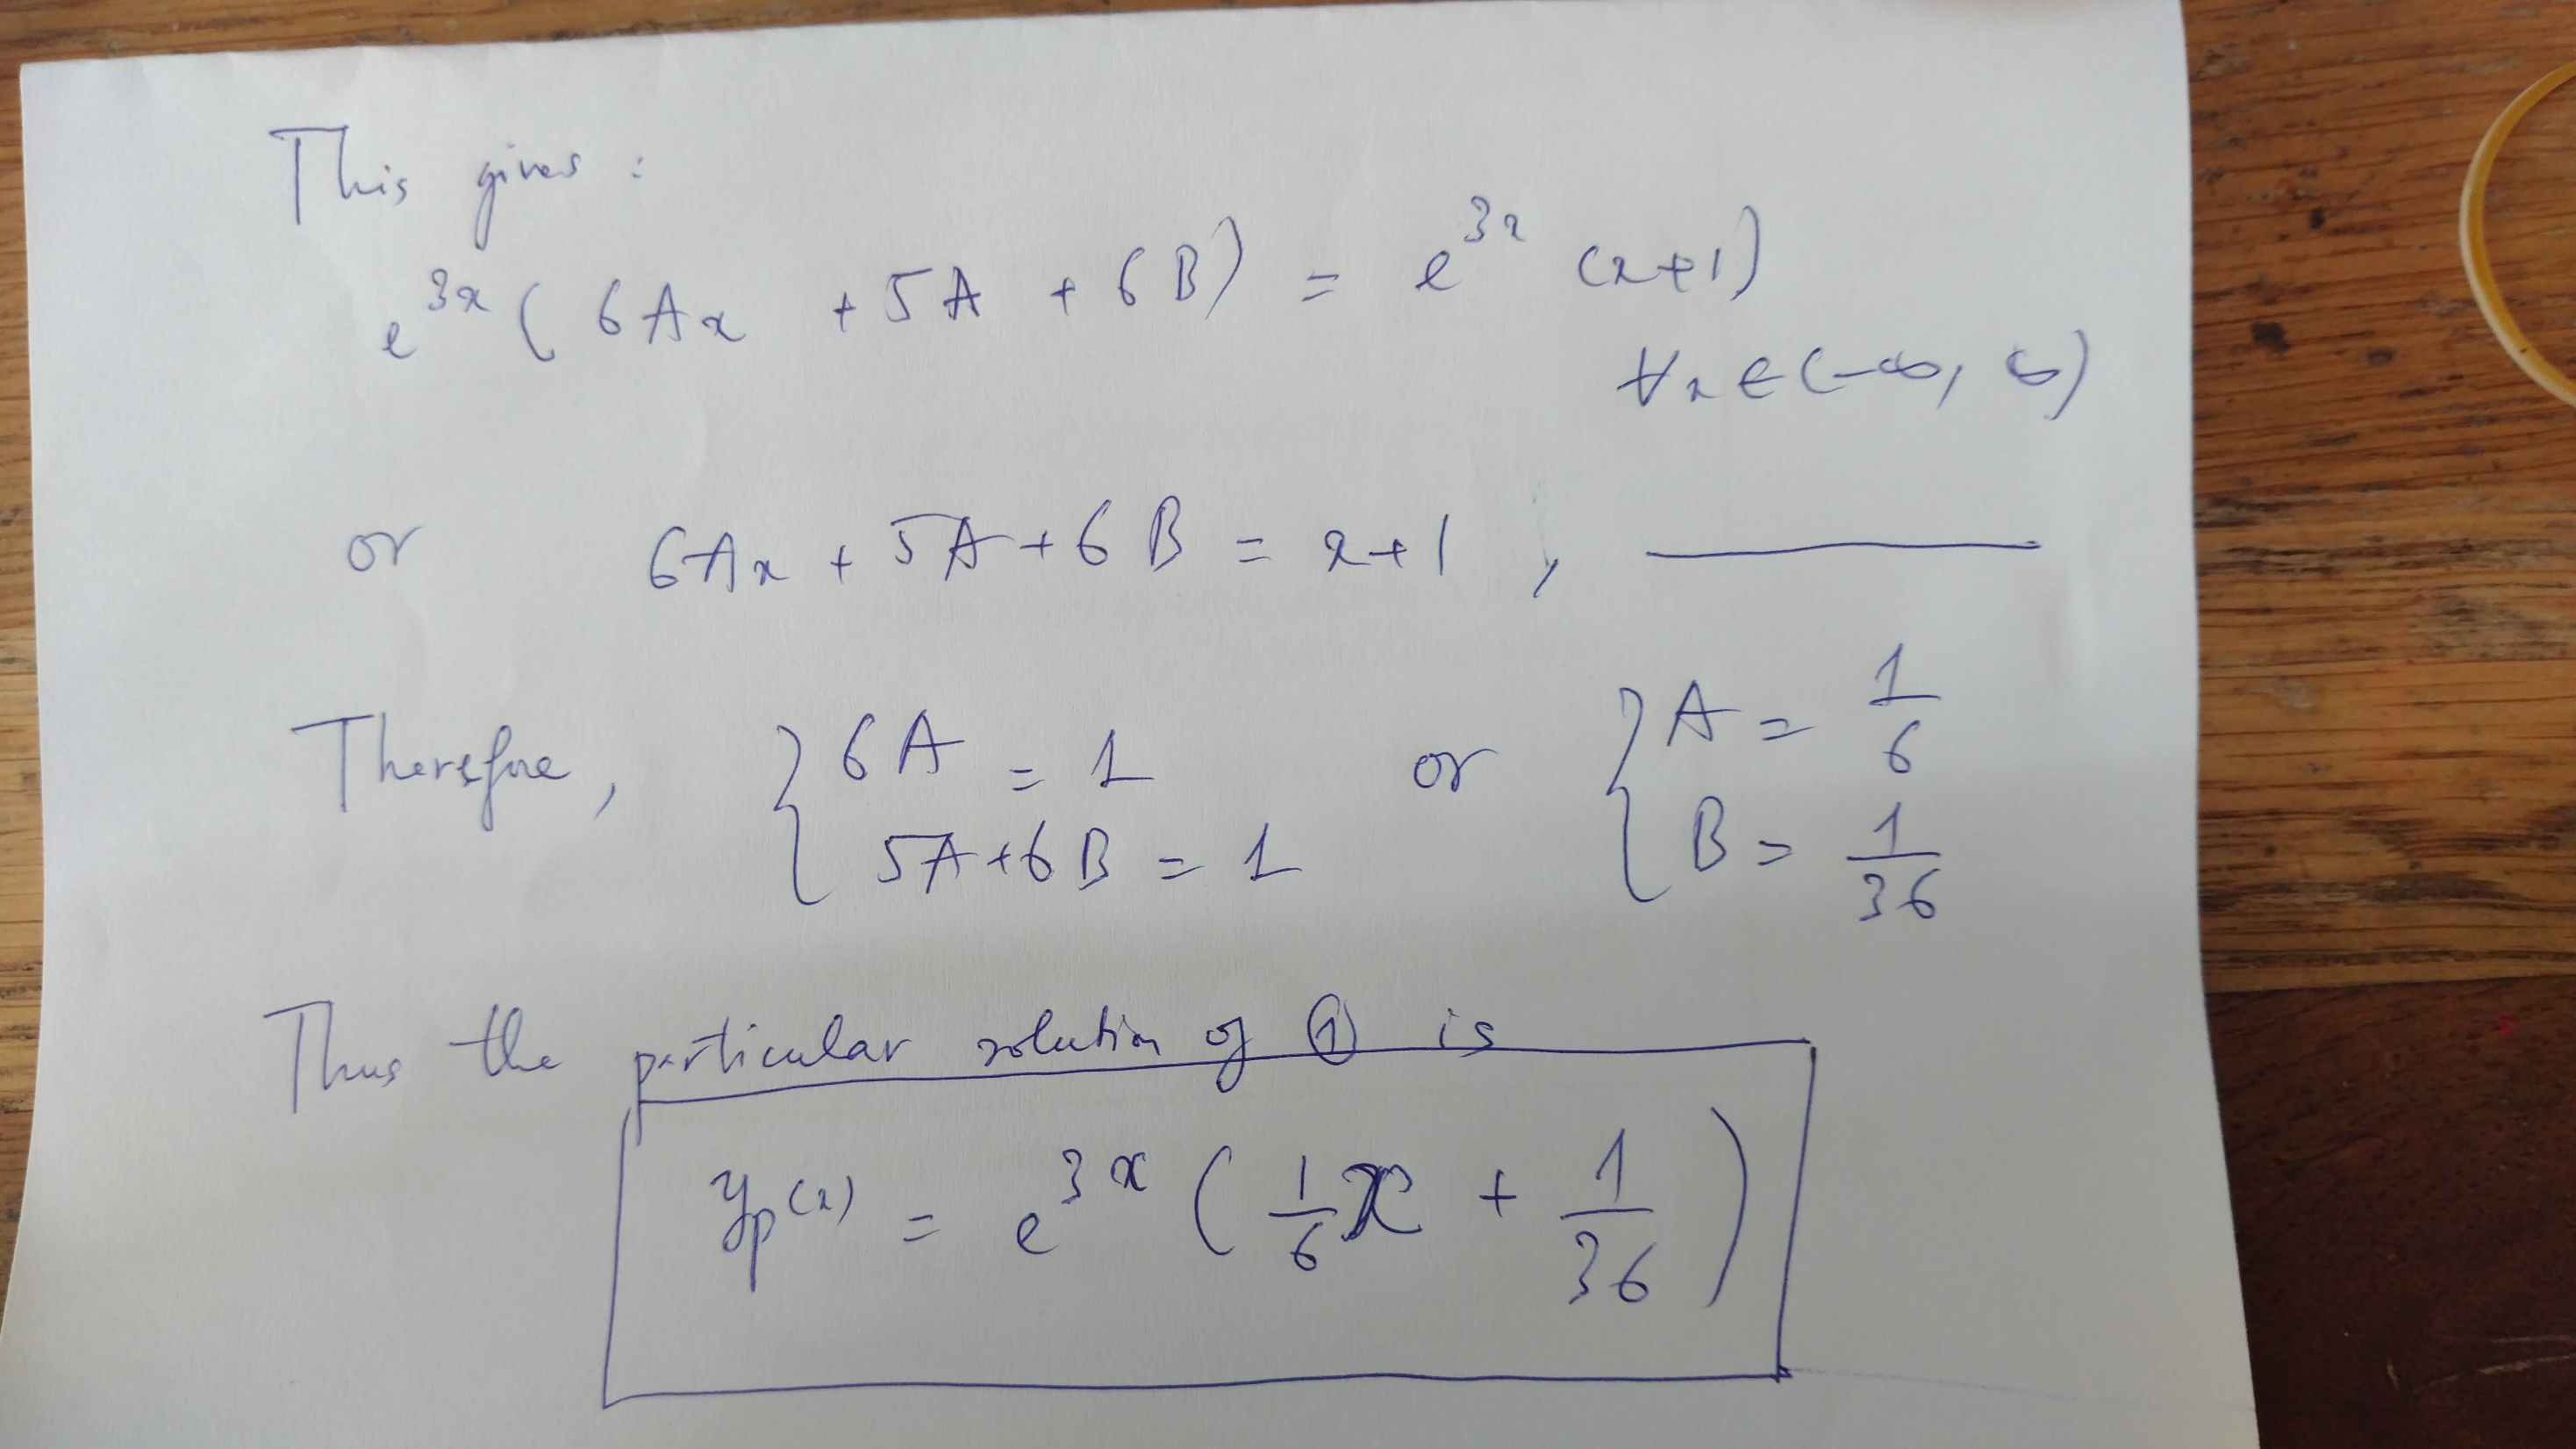 This gives :
e^{3x} ( 6Ax + 5A + 6B ) = e^{3x} (x+1)
∀x ∈ (-∞, ∞)
or 6Ax + 5A + 6B = x+1 , ———
Therefore, { 6A = 1 or { A = 1/6
5A+6B = 1 B = 1/36
Thus the particular solution of ① is
y_p(x) = e^{3x} ( 1/6 x + 1/36 )